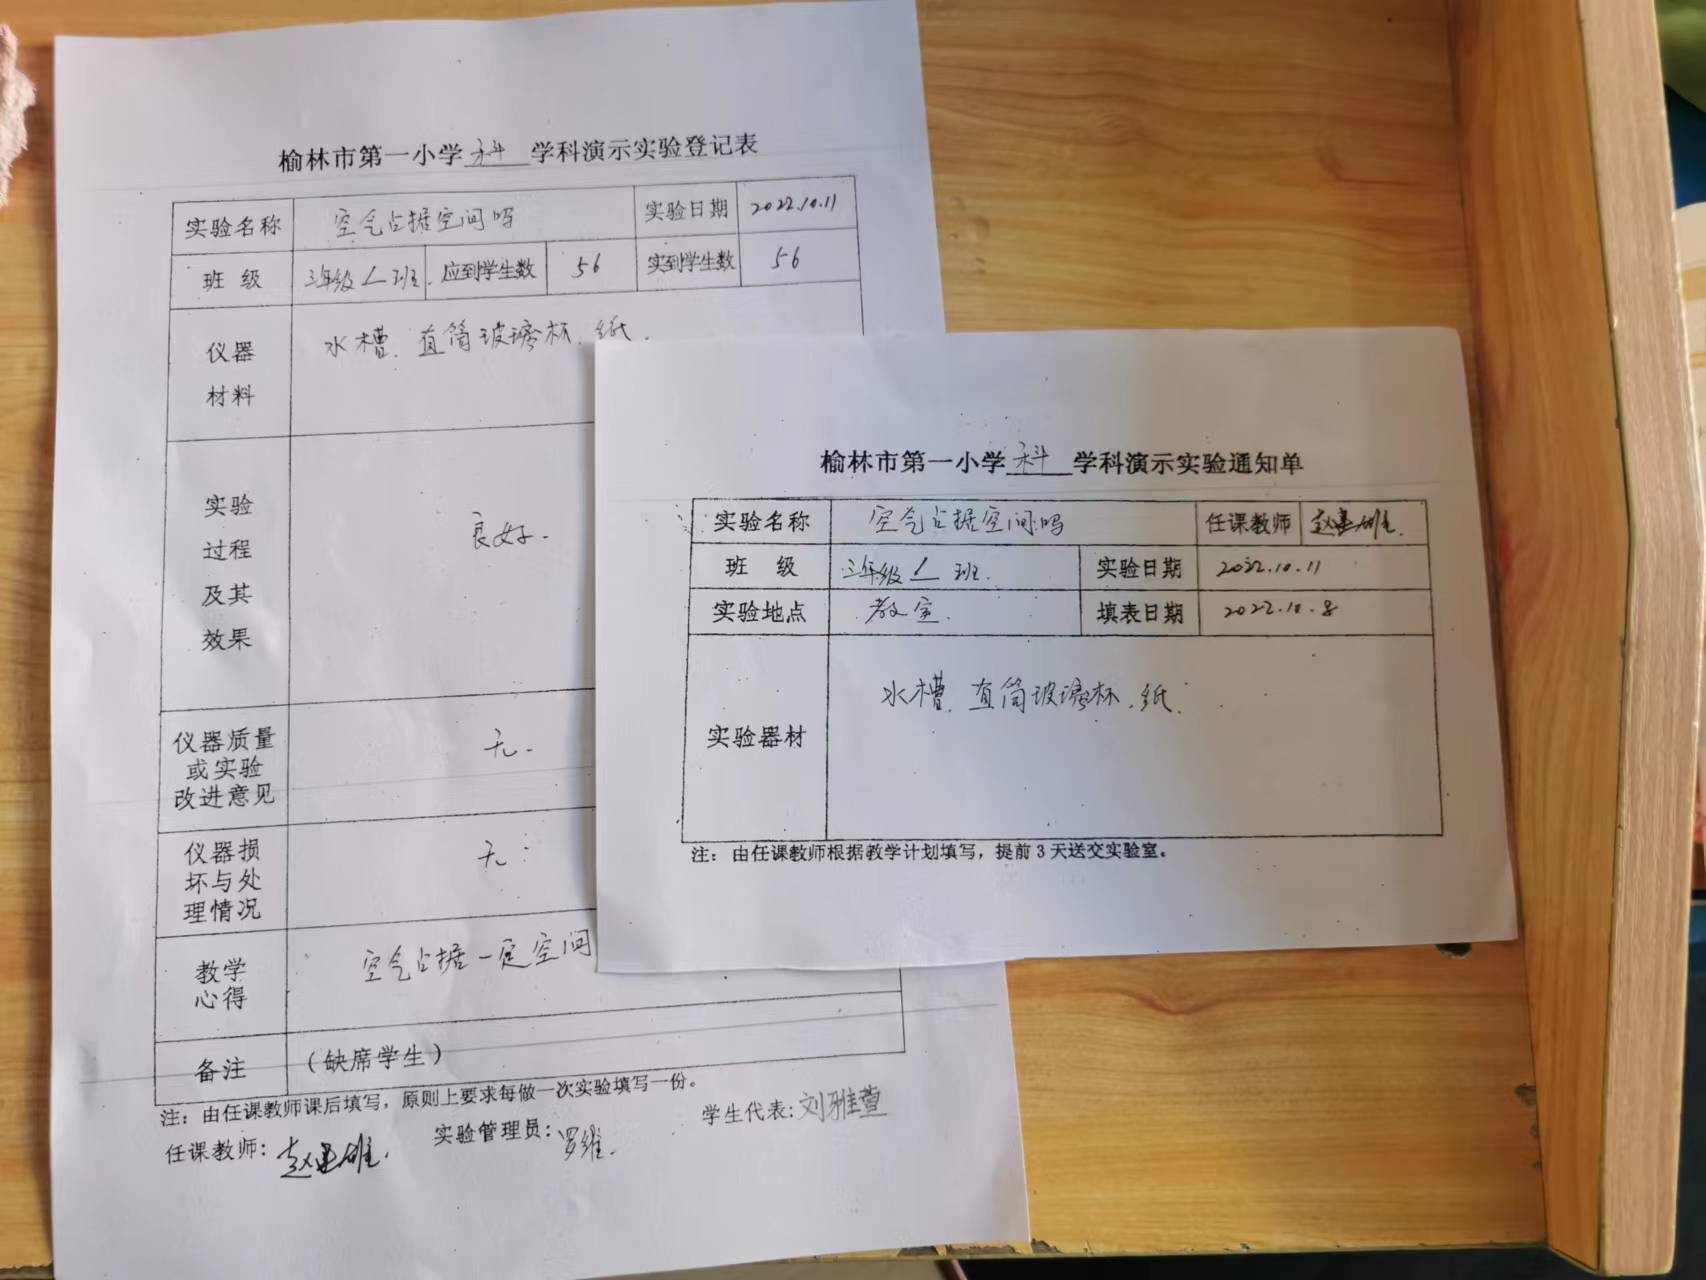 榆林市第一小学 科 学科演示实验登记表
实验名称 空气占据空间吗 实验日期 2022.10.11
班 级 三年级 班. 应到学生数 56 实到学生数 56
仪器
材料
水槽. 直筒玻璃杯. 纸.
实验
过程
及其
效果
良好.
仪器质量
或实验
改进意见
无.
仪器损
坏与处
理情况
无.
教学
心得
空气占据一定空间
备注 （缺席学生）
注：由任课教师课后填写，原则上要求每做一次实验填写一份。
任课教师: 赵 雄. 实验管理员: 罗维. 学生代表: 刘雅萱
榆林市第一小学 科 学科演示实验通知单
实验名称 空气占据空间吗 任课教师 赵 雄.
班 级 三年级 班. 实验日期 2022.10.11
实验地点 教室. 填表日期 2022.10.8
实验器材 水槽. 直筒玻璃杯. 纸.
注：由任课教师根据教学计划填写，提前 3 天送交实验室。